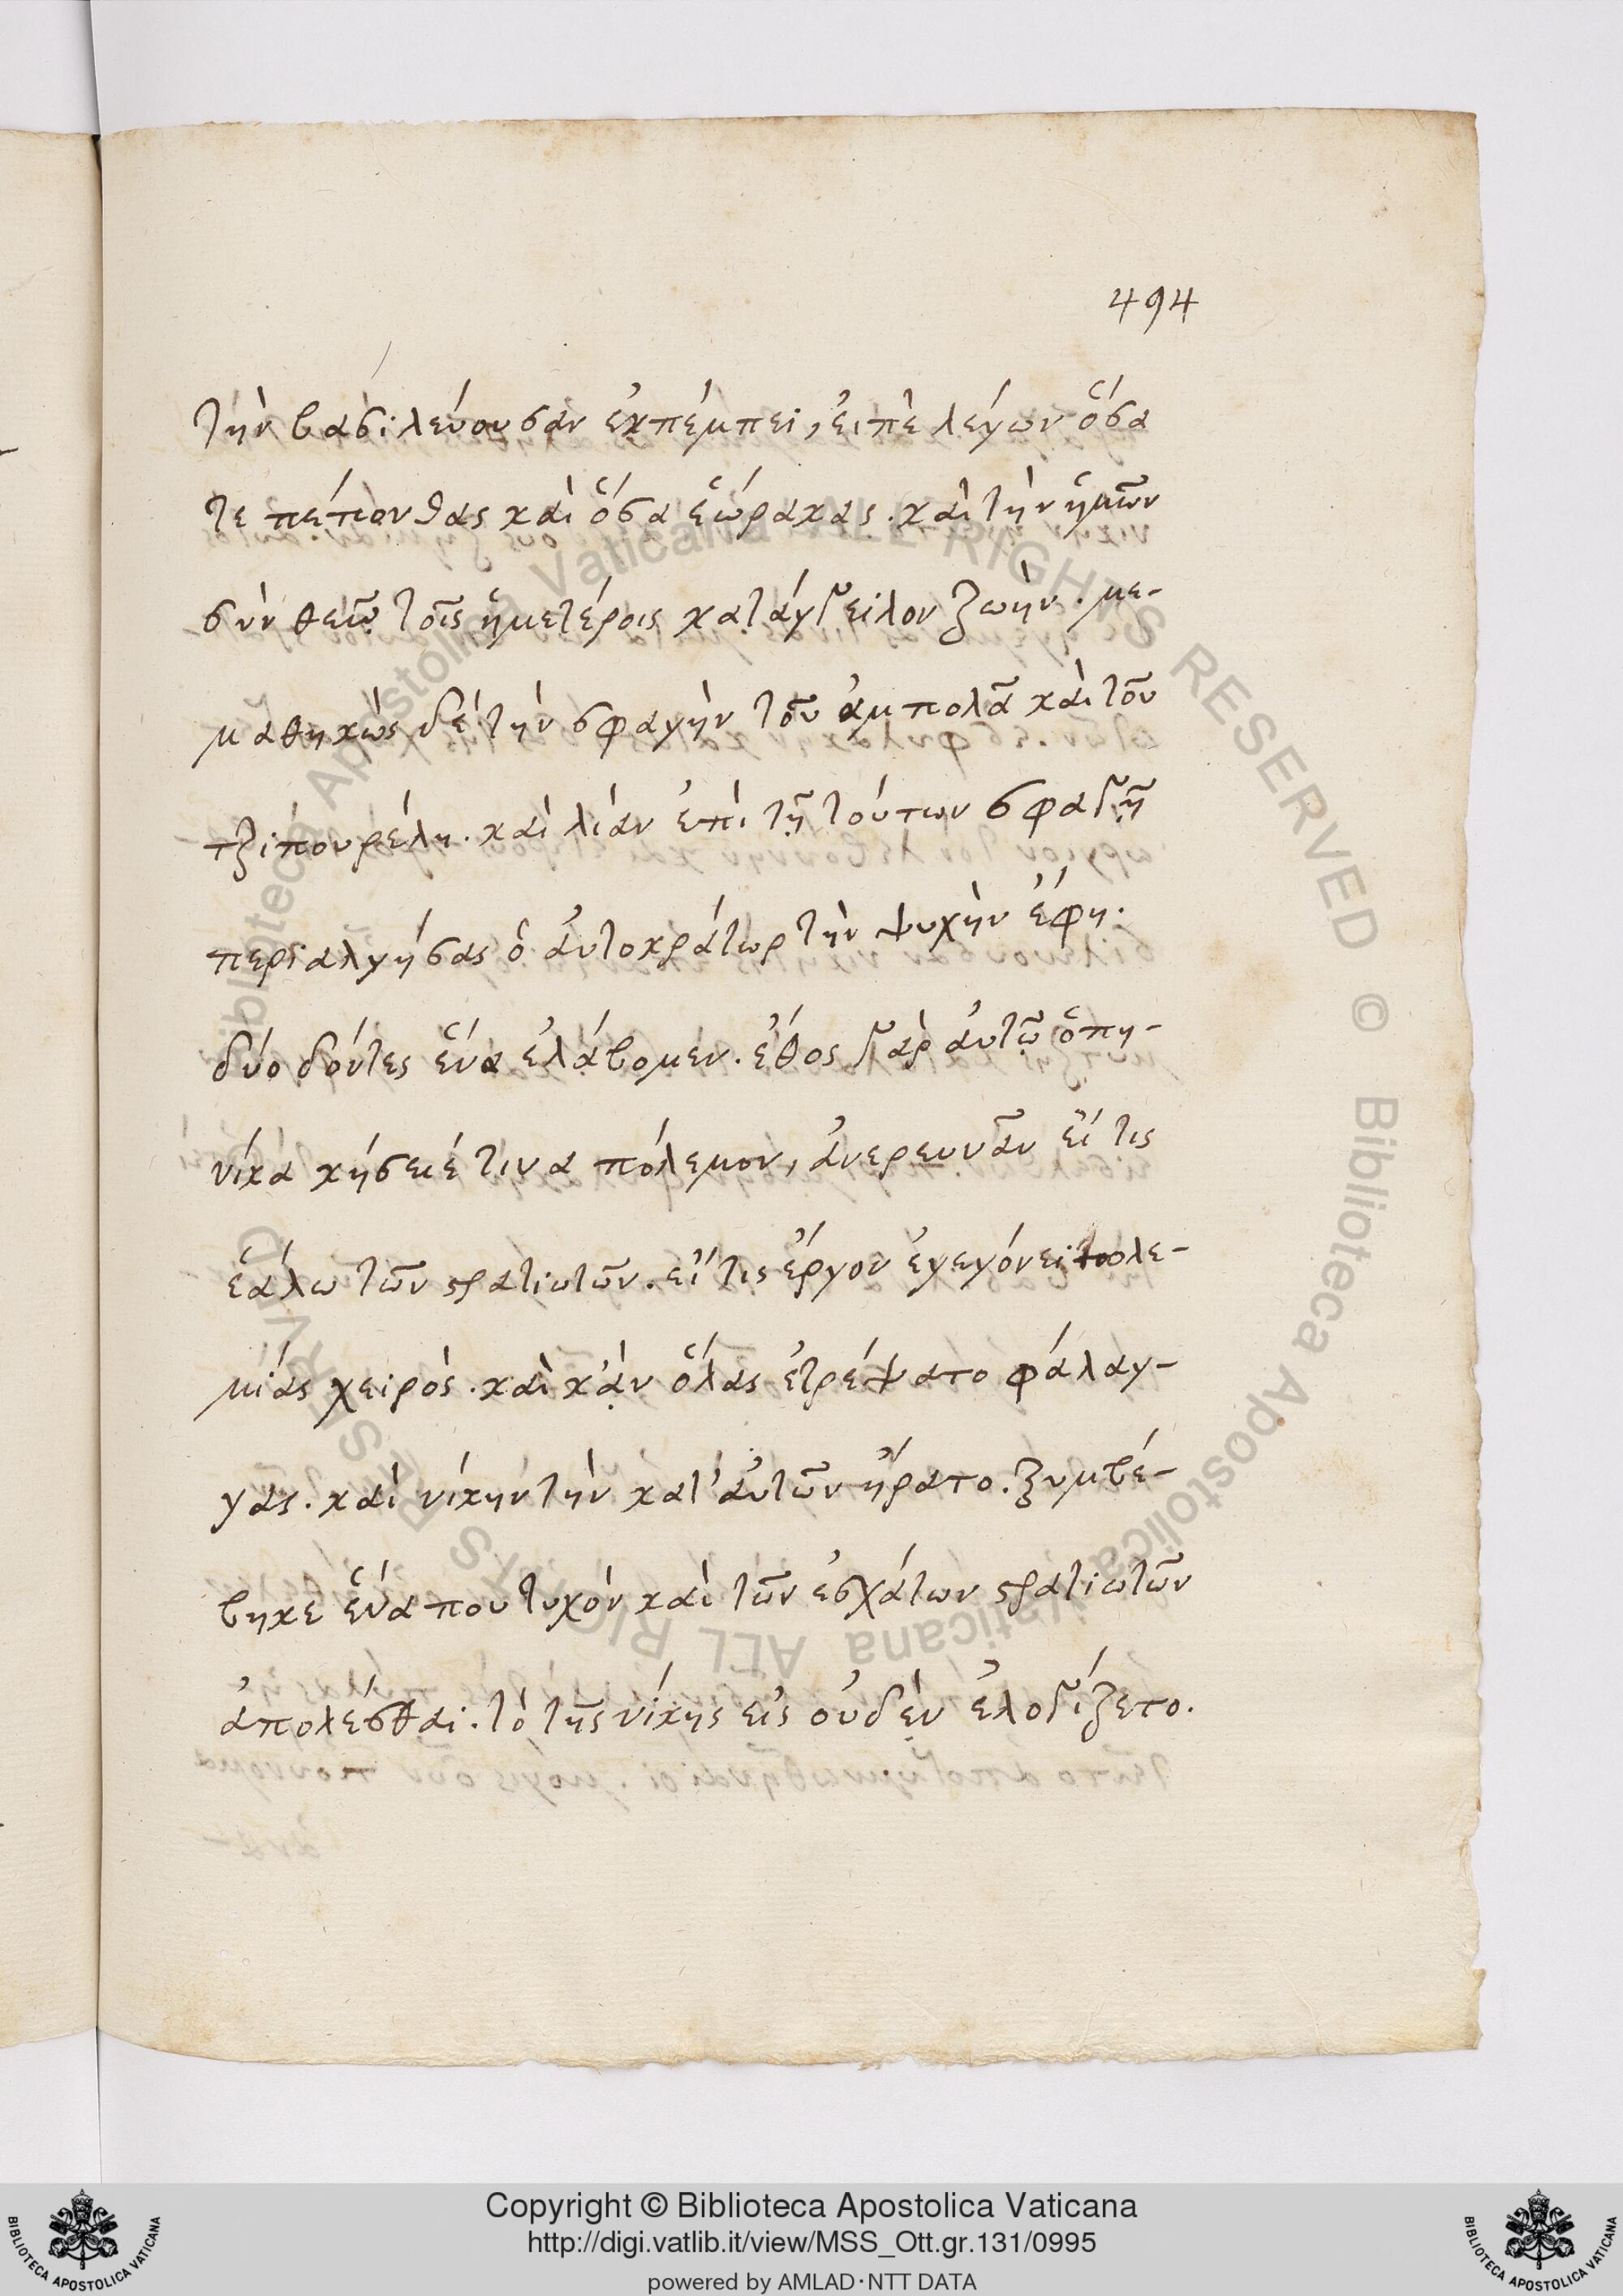 494
τὴν βασιλεύουσαν ἐκπέμπει, εἰπὲ λέγων ὅσα
τε πέπονθας καὶ ὅσα ἑώρακας. καὶ τὴν ἡμῶν
σὺν θεῷ τοῖς ἡμετέροις κατάγγειλον ζωήν. με-
μαθηκὼς δὲ τὴν σφαγὴν τοῦ ἀμπολᾶ καὶ τοῦ
τζιπουρέλη. καὶ λίαν ἐπὶ τῇ τούτων σφαγῇ
περιαλγήσας ὁ αὐτοκράτωρ τὴν ψυχὴν ἔφη.
δύο δόντες ἕνα ἐλάβομεν. ἔθος γὰρ αὐτῷ ὁπη-
νίκα κήσειέ τινα πόλεμον, ἀνερευνᾶν εἴ τις
ἑάλω τῶν στρατιωτῶν. εἴ τις ἔργον ἐγεγόνει πολε-
μίας χειρός. καὶ κἂν ὅλας ἐτρέψατο φάλαγ-
γας. καὶ νίκην τὴν κατ' αὐτῶν ἤρατο. ξυμβέ-
βηκε ἕνα που τυχὸν καὶ τῶν ἐσχάτων στρατιωτῶν
ἀπολέσθαι. τὸ τῆς νίκης εἰς οὐδὲν ἐλογίζετο.
Copyright © Biblioteca Apostolica Vaticana
http://digi.vatlib.it/view/MSS_Ott.gr.131/0995
powered by AMLAD·NTT DATA
BIBLIOTECA APOSTOLICA VATICANA
BIBLIOTECA APOSTOLICA VATICANA
© Biblioteca Apostolica Vaticana ALL RIGHTS RESERVED
© Biblioteca Apostolica Vaticana ALL RIGHTS RESERVED